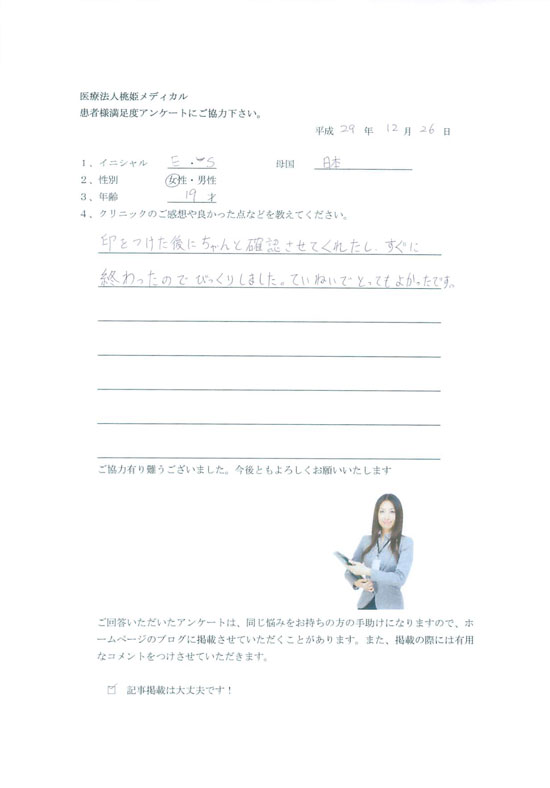 医療法人桃姫メディカル
患者様満足度アンケートにご協力下さい。
平成 29 年 12 月 26 日
1、イニシャル E・S 母国 日本
2、性別 女性・男性
3、年齢 19 才
4、クリニックのご感想や良かった点などを教えてください。
印をつけた後にちゃんと確認させてくれたし、すぐに
終わったのでびっくりしました。ていねいでとってもよかったです。
ご協力有り難うございました。今後ともよろしくお願いいたします
ご回答いただいたアンケートは、同じ悩みをお持ちの方の手助けになりますので、ホ
ームページのブログに掲載させていただくことがあります。また、掲載の際には有用
なコメントをつけさせていただきます。
☑ 記事掲載は大丈夫です！